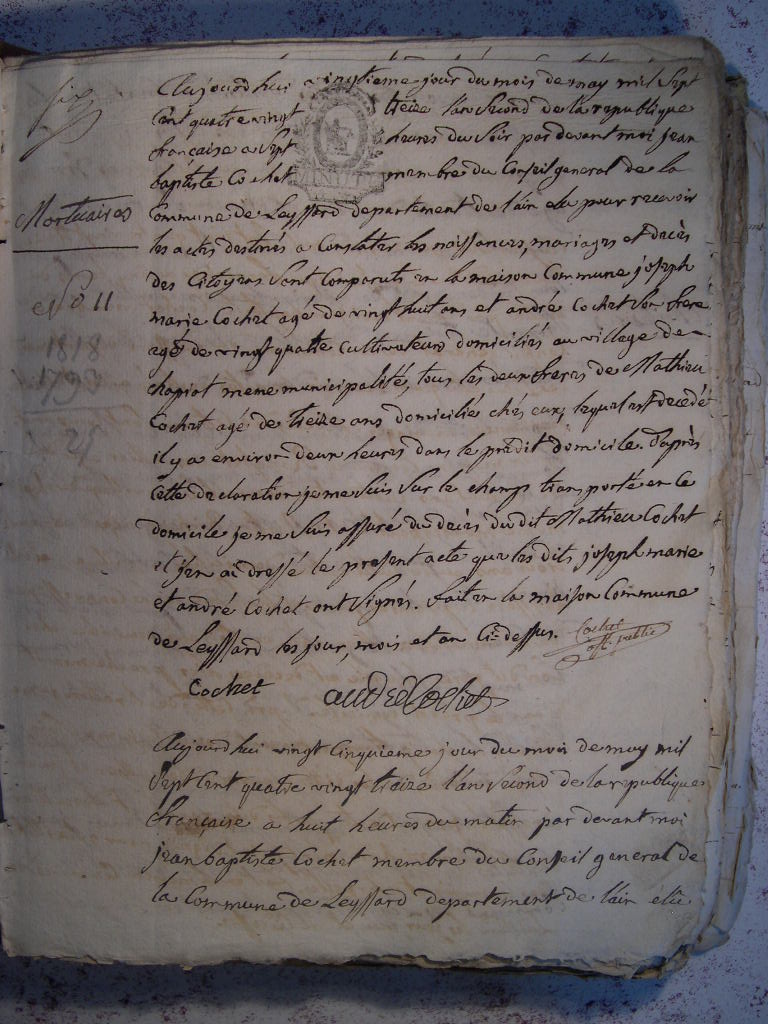 six
Aujourd hui vingtieme jour du mois de may mil Sept
Cent quatre vingt treize l'an Second de la republique
française a Sept heures du Soir par devant moi jean
baptiste Cochet membre du Conseil general de la
Mortuaires
Commune de Leyssard departement de l'ain elu pour recevoir
les actes destinés a Constater les naissances, mariages et decès
des Citoyens Sont Comparuts en la maison Commune joseph
No 11
marie Cochet agé de vingt huit ans et andré Cochet Son frere
1818
agé de vingt quatre cultivateurs domiciliés au village de
1793
chapiat meme municipalité, tous les deux freres de Mathieu
Cochet agé de treize ans domicilié chés eux, lequel est decedé
25
il y a environ deux heures dans le predit domicile. d'après
Cette declaration je me Suis Sur le champ transporté en Ce
domicile je me Suis assuré du decès du dit Mathieu Cochet
et j'en ai dressé le present acte que les dits joseph marie
et andré Cochet ont Signés. fait en la maison Commune
de Leyssard les jour, mois et an Ci dessus. Cochet
off. public
Cochet andré Cochet
Aujourd hui vingt Cinquieme jour du mois de may mil
Sept Cent quatre vingt treize l'an Second de la republique
française a huit heures du matin par devant moi
jean baptiste Cochet membre du Conseil general de
la Commune de Leyssard departement de l'ain élu